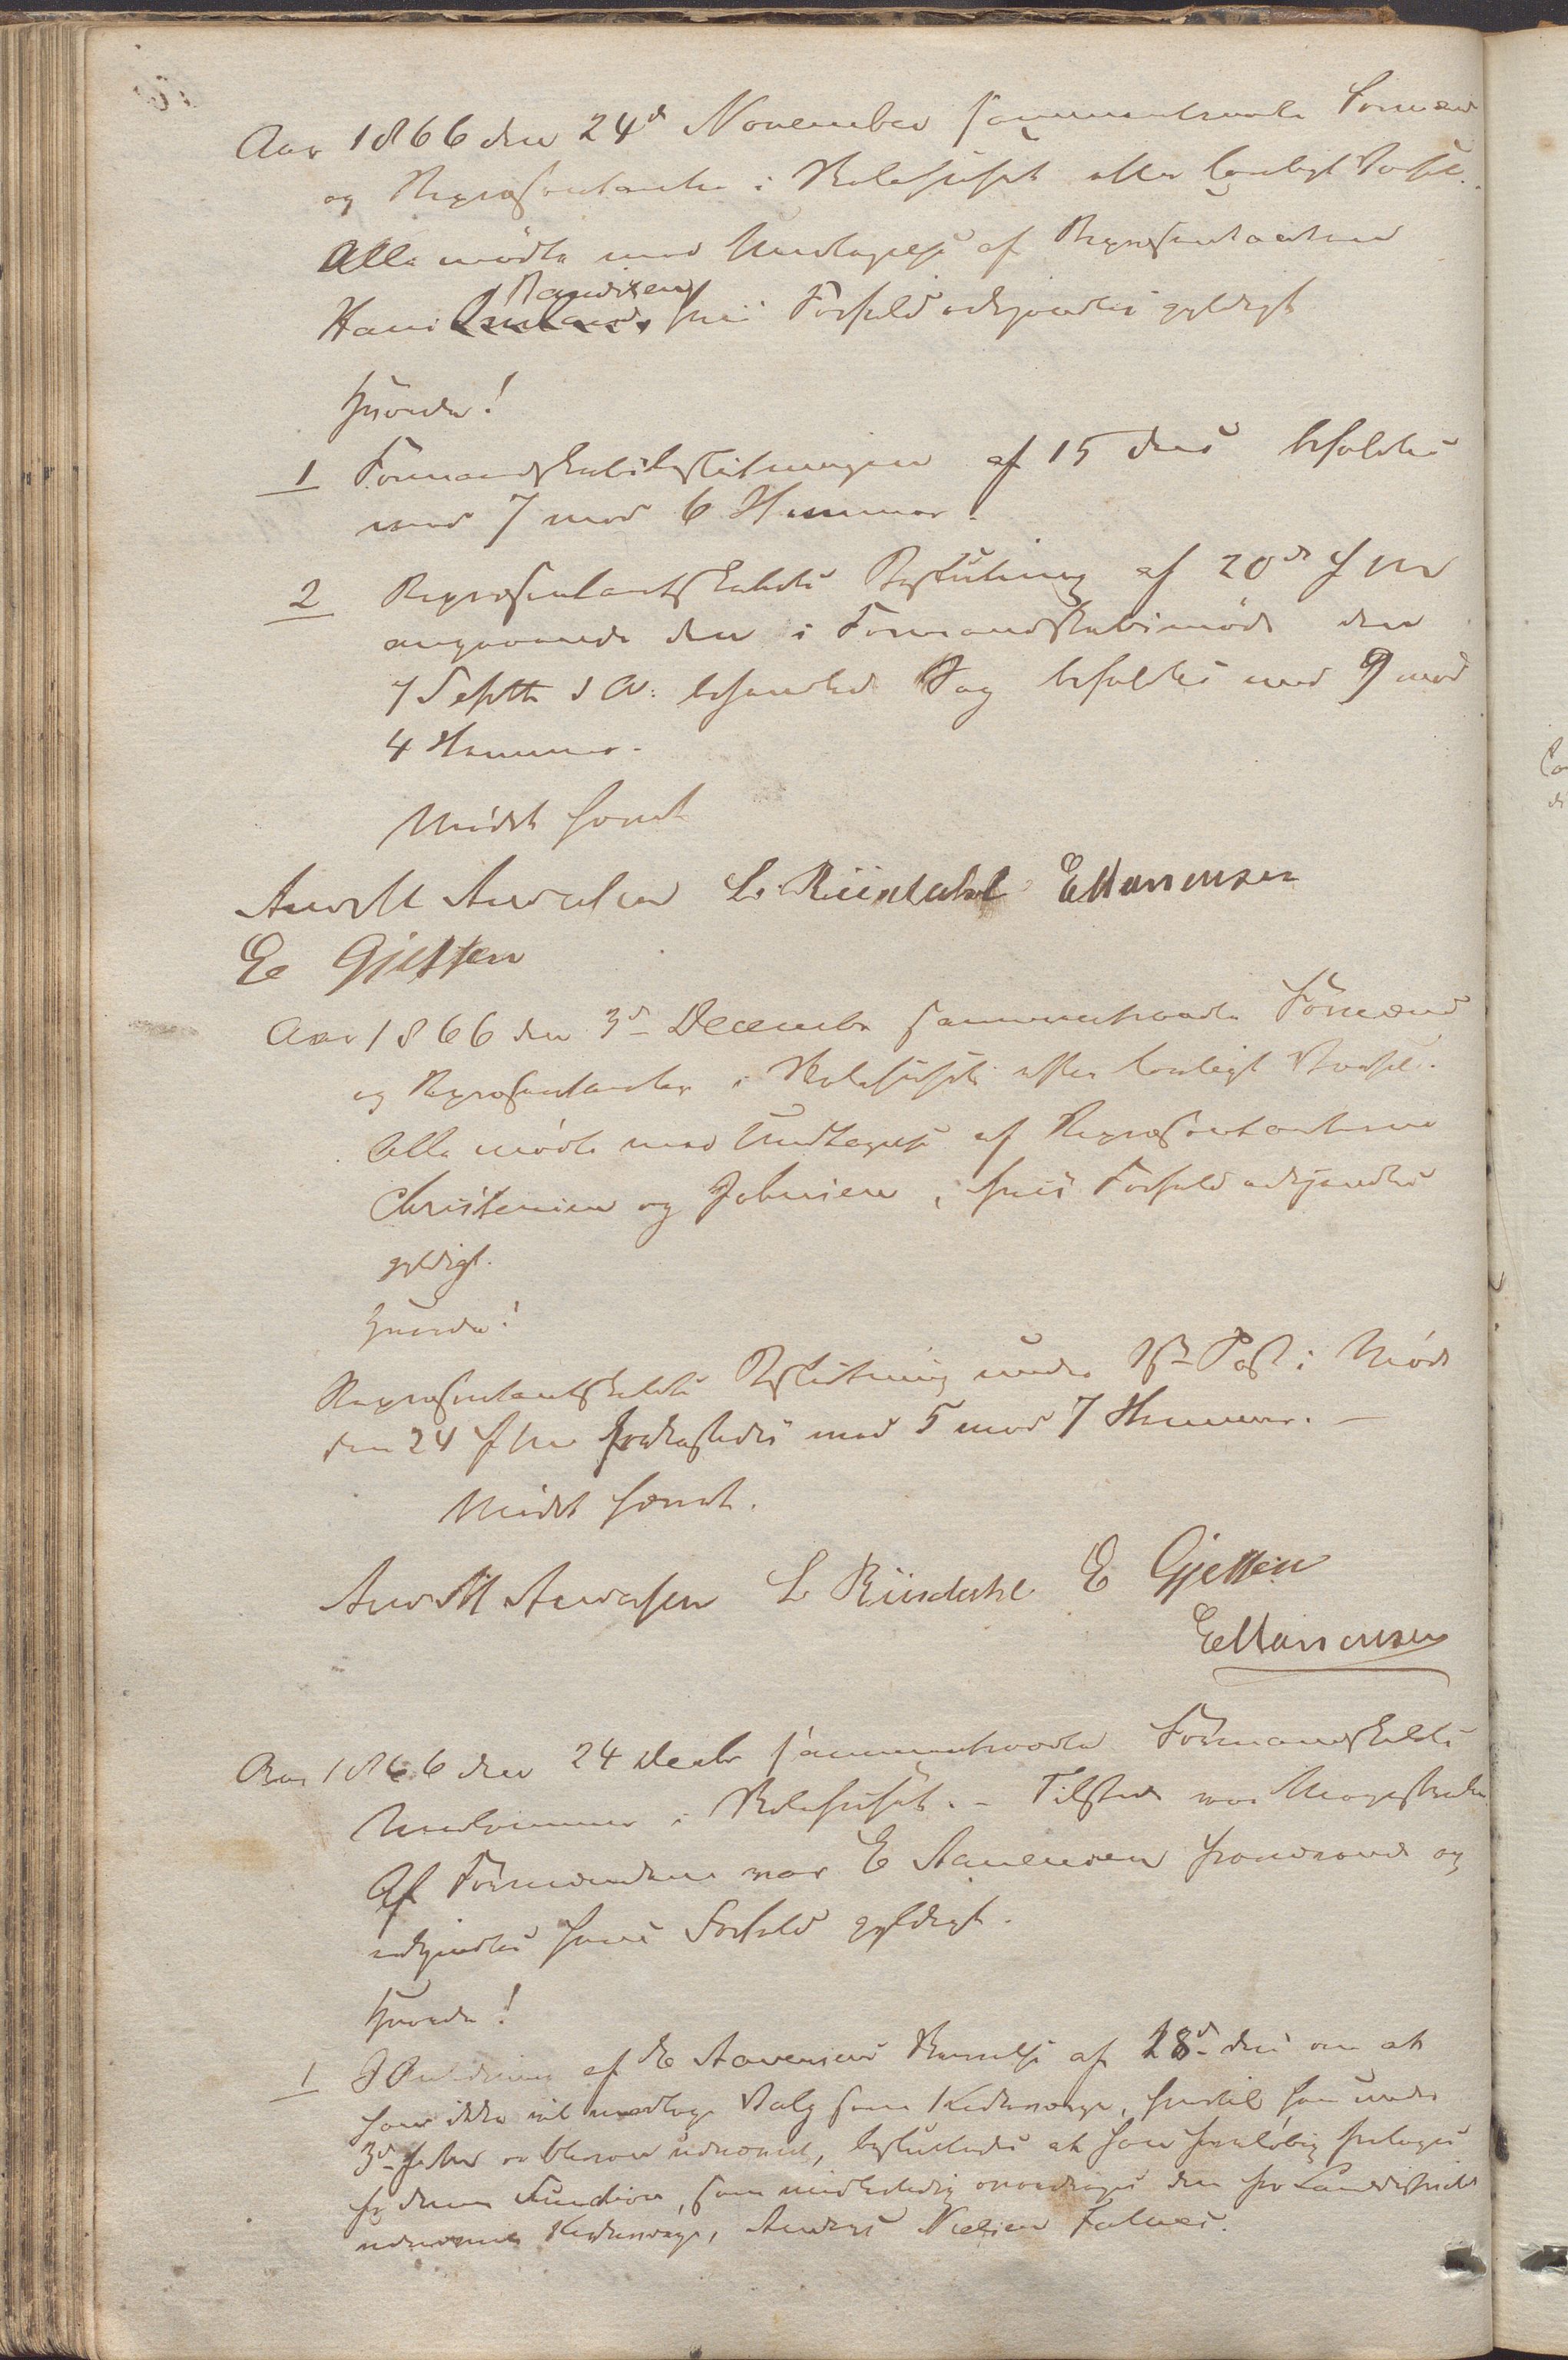 Aar 1866 den 24de November sammentraadte Formænd
og Repræsentanter i Skolehuset efter lovligt Varsel.
Alle mødte med Undtagelse af Repræsentanten
Hans Rawitzen hvis Forfald erkjendtes gyldigt
Hvorda!
1 Formandskabsbeslutningen af 15 dens befoldtes
med 7 mod 6 Stemmer.
2 Repræsentantskabets Beslutning af 20de f M
angaaende den i Formandskabsmøde den
7 Septbr d A: behandlede Sag befoldtes med 9 mod
4 Stemmer.
Mødet hævet
And M Andersen L. Riisdahl E Hansensen
E Gjessen
Aar 1866 den 3de December sammentraadte Formænd
og Repræsentanter i Skolehuset efter lovligt Varsel.
Alle mødte med Undtagelse af Repræsentanterne
Christensen og Johnsen, hvis Forfald erkjendtes
gyldigt.
Hvorda!
Repræsentantskabets Beslutning under 1ste Post i Møde
den 24 f M forkastedes med 5 mod 7 Stemmer. —
Mødet hævet.
And M Andersen L Riisdahl E Gjessen
E Hansensen
Aar 1866 den 24 Decbr sammentraadte Formandskabets
Medlemmer i Skolehuset. - Tilstede var Magistraten
Af Formændene var E Aanensen fraværende og
erkjendtes hans Forfald gyldigt.
Hvorda!
1 I Anledning af E Aanensens Skrivelse af 18de dens om at
han ikke vil modtage Valg som Kirkeværge, hvortil han under
3de f M er bleven udnævnt, besluttedes at han foreløbig fritages
for denne Function, som midlertidig overdrages den for Landdistriktet
udnævnte Kirkeværge, Anders Nielsen Falnes.